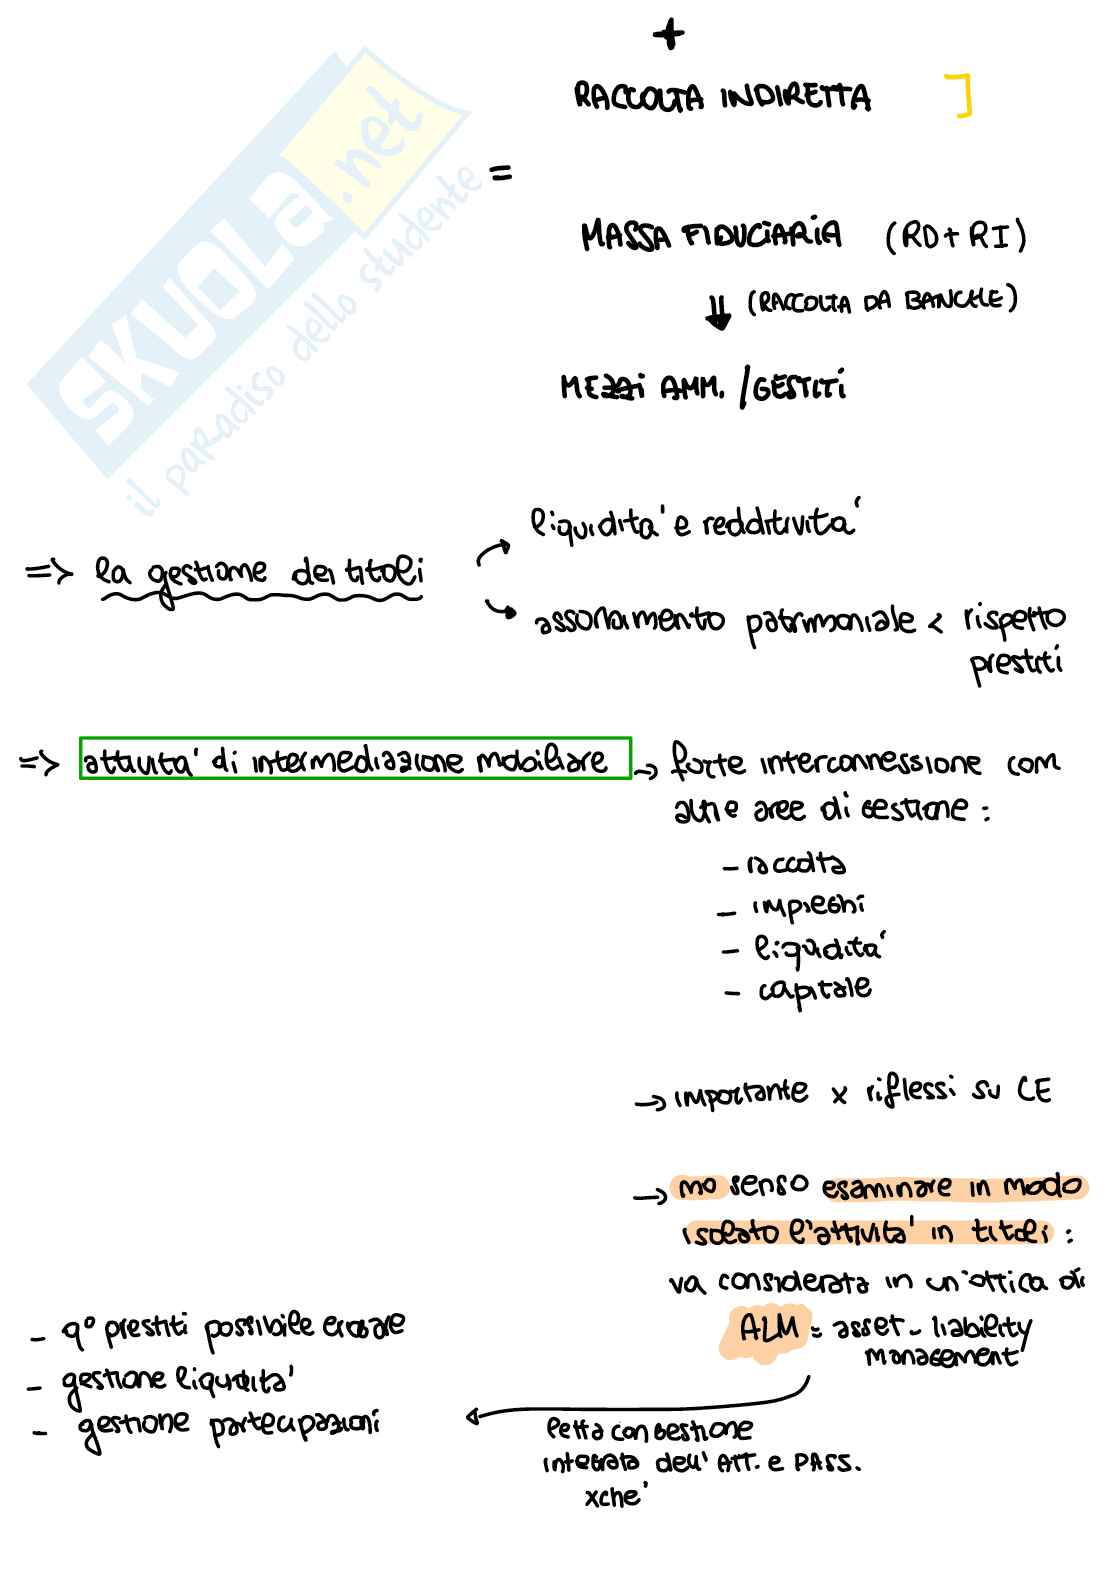 +
RACCOLTA INDIRETTA ]
=
MASSA FIDUCIARIA (RD+RI)
⇓ (RACCOLTA DA BANCHE)
MEZZI AMM. / GESTITI
SKUOLA.net
il paradiso dello studente
=> la gestione dei titoli
liquidita' e redditivita'
assorbimento patrimoniale < rispetto
prestiti
=> attivita' di intermediazione mobiliare → forte interconnessione con
altre aree di gestione :
- raccolta
- impieghi
- liquidita'
- capitale
→ importante x riflessi su CE
→ no senso esaminare in modo
isolato l'attivita' in titoli :
va considerata in un'ottica di
ALM = asset - liability
management
letta con gestione
integrata dell' ATT. e PASS.
xche'
- q° prestiti possibile erogare
- gestione liquidita'
- gestione partecipazioni